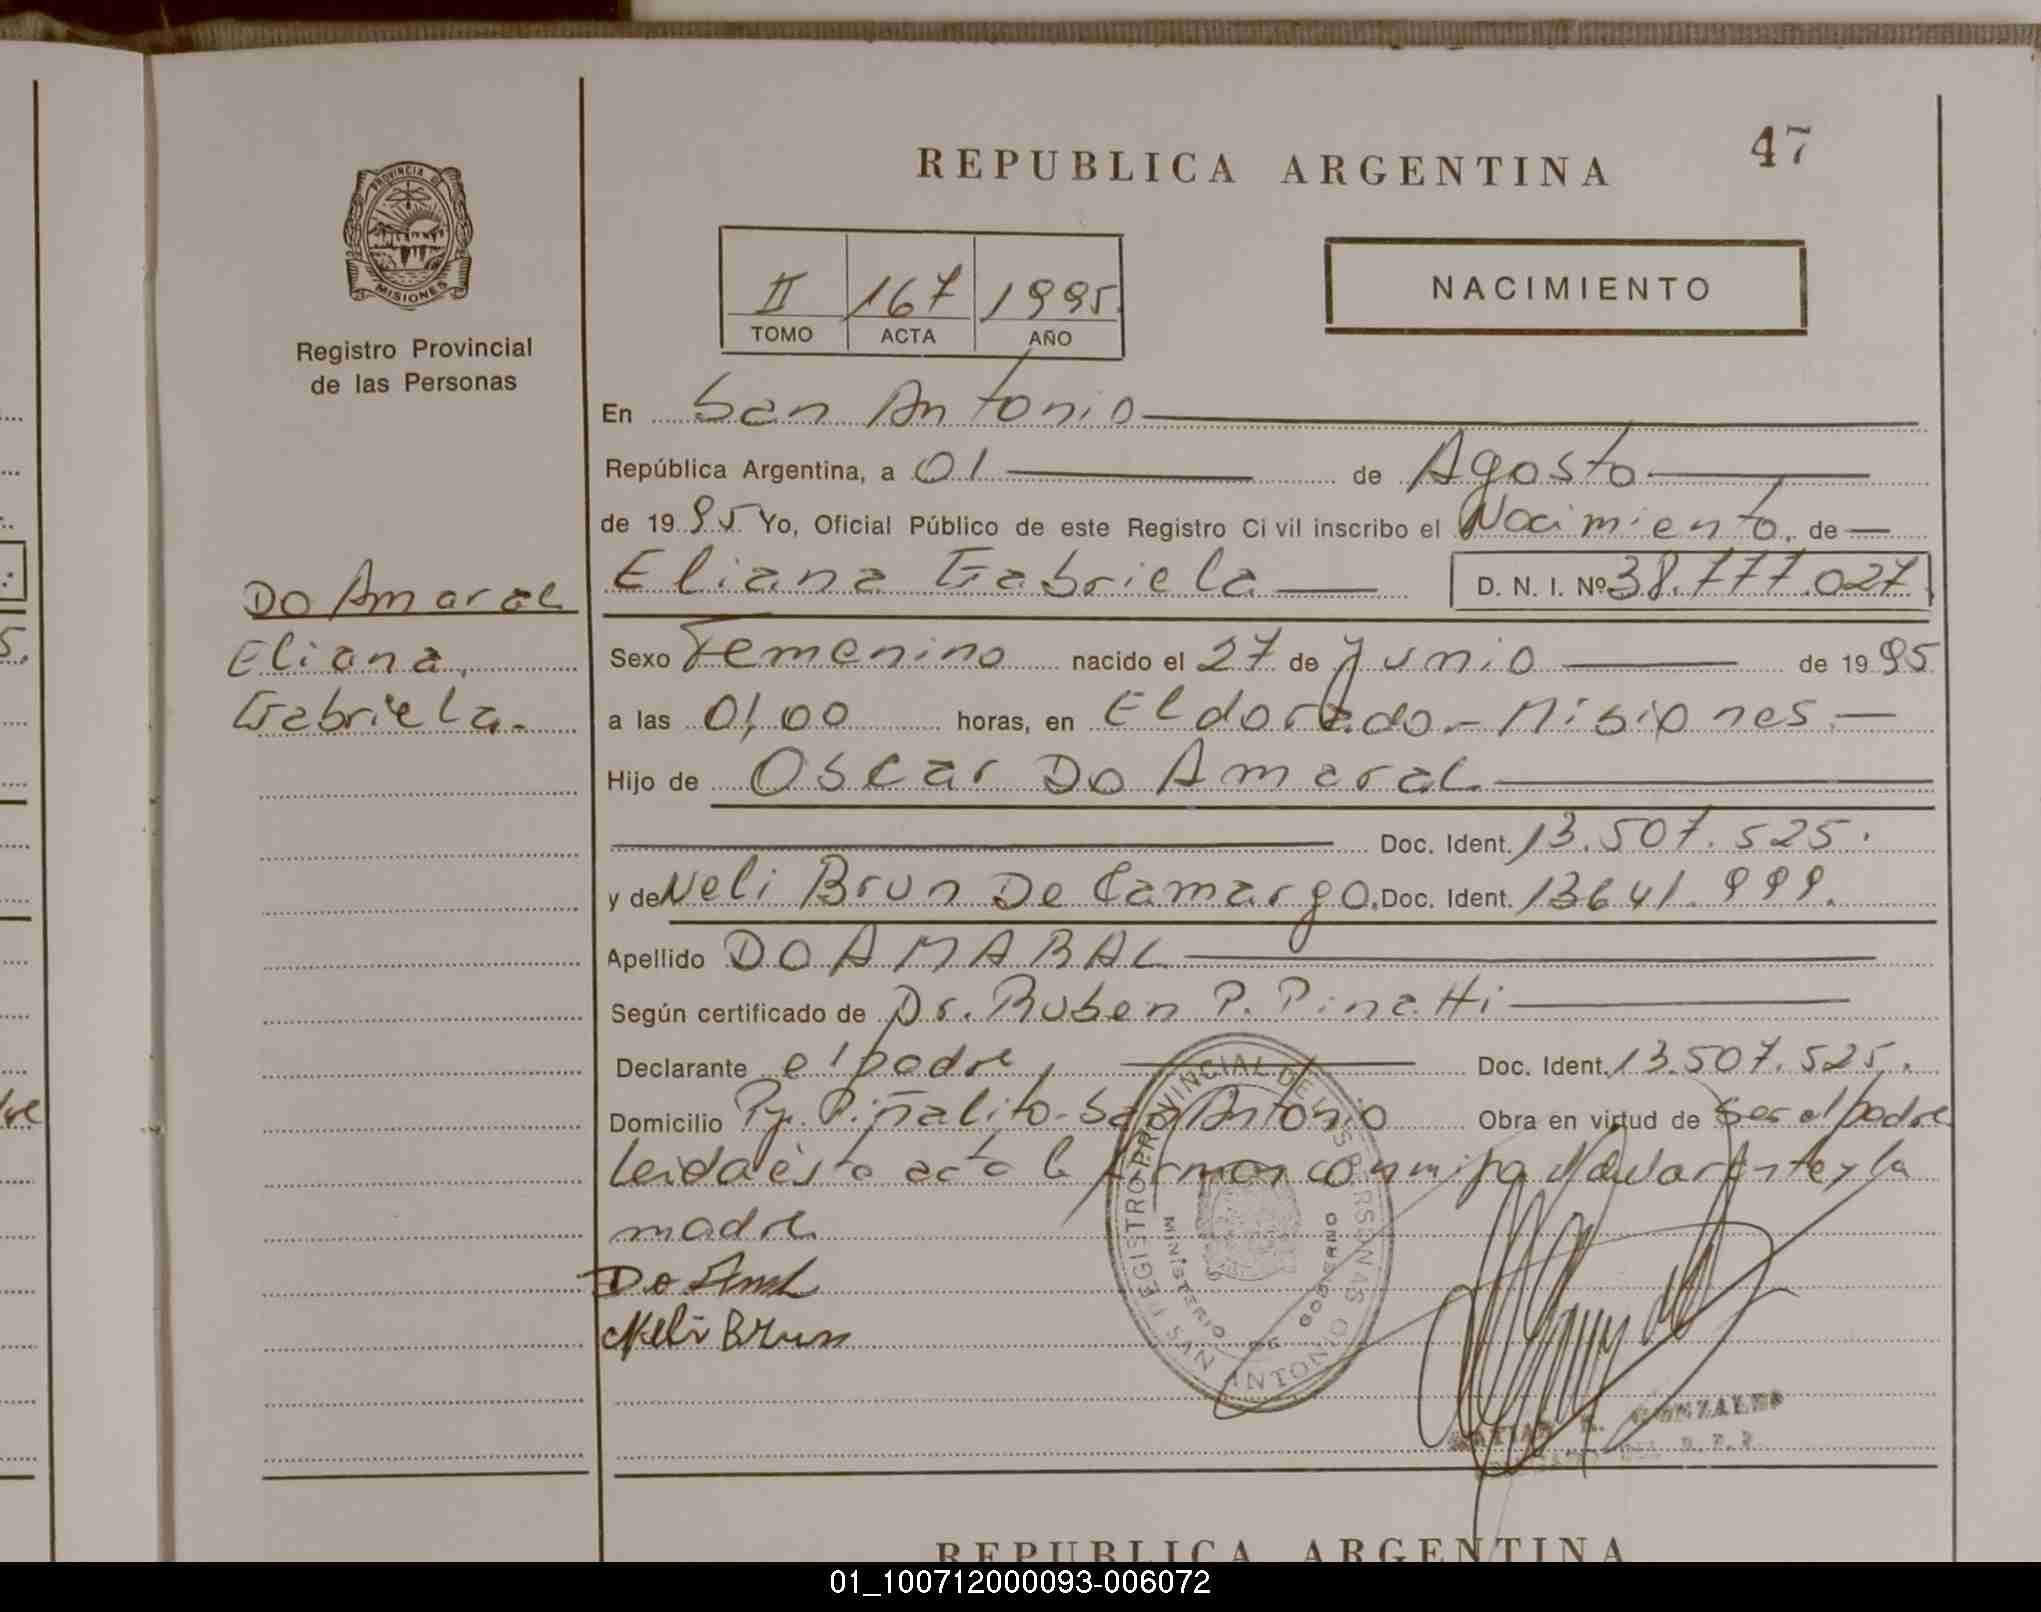 47
REPUBLICA ARGENTINA
PROVINCIA DE
MISIONES
Registro Provincial
de las Personas
II 167 1995
TOMO ACTA AÑO
NACIMIENTO
En San Antonio
República Argentina, a 01 de Agosto
de 1995 Yo, Oficial Público de este Registro Civil inscribo el Nacimiento, de
Eliana Gabriela D. N. I. Nº 38.777.027
Do Amaral
Eliana
Gabriela.
Sexo Femenino nacido el 27 de Junio de 1995
a las 01,00 horas, en Eldorado - Misiones.
Hijo de Oscar Do Amaral
Doc. Ident. 13.507.525.
y de Neli Brun De Camargo. Doc. Ident. 13641.999.
Apellido DO AMARAL
Según certificado de Dr. Ruben P. Pinatti
Declarante el padre, Doc. Ident. 13.507.525.
Domicilio Pje. Piñalito - San Antonio Obra en virtud de ser el padre
leida ésta acta la firman conmigo el declarante y la
madre
Do Aml
Neli Brun
REGISTRO PROVINCIAL DE LAS PERSONAS
MINISTERIO DE GOBIERNO
SAN ANTONIO
GONZALEZ
REPUBLICA ARGENTINA
01_100712000093-006072